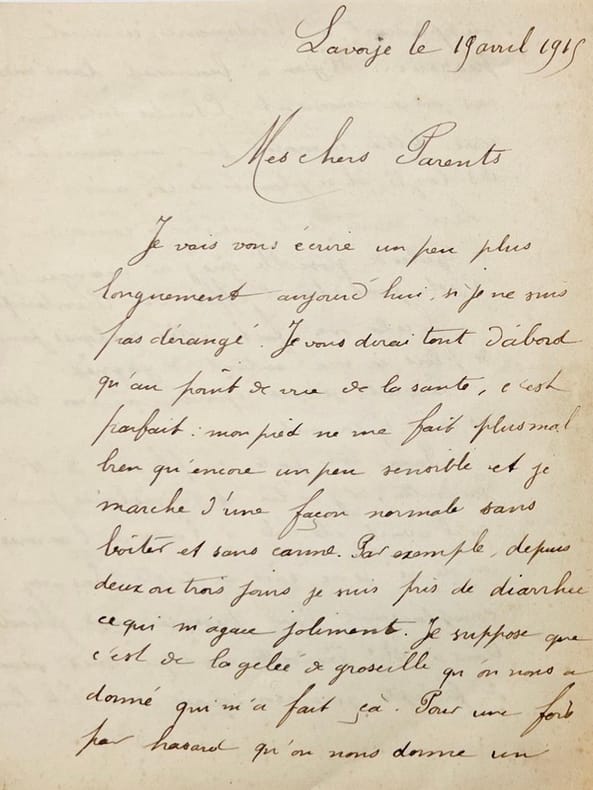 Lavoye le 19 avril 1915
Mes chers Parents
Je vais vous écrire un peu plus
longuement aujourd'hui, si je ne suis
pas dérangé. Je vous dirai tout d'abord
qu'au point de vue de la santé, c'est
parfait : mon pied ne me fait plus mal
bien qu'encore un peu sensible et je
marche d'une façon normale sans
boiter et sans canne. Par exemple, depuis
deux ou trois jours je suis pris de diarrhée
ce qui m'agace joliment. Je suppose que
c'est de la gelée de groseille qu'on nous a
donné qui m'a fait çà. Pour une fois
par hasard qu'on nous donne un